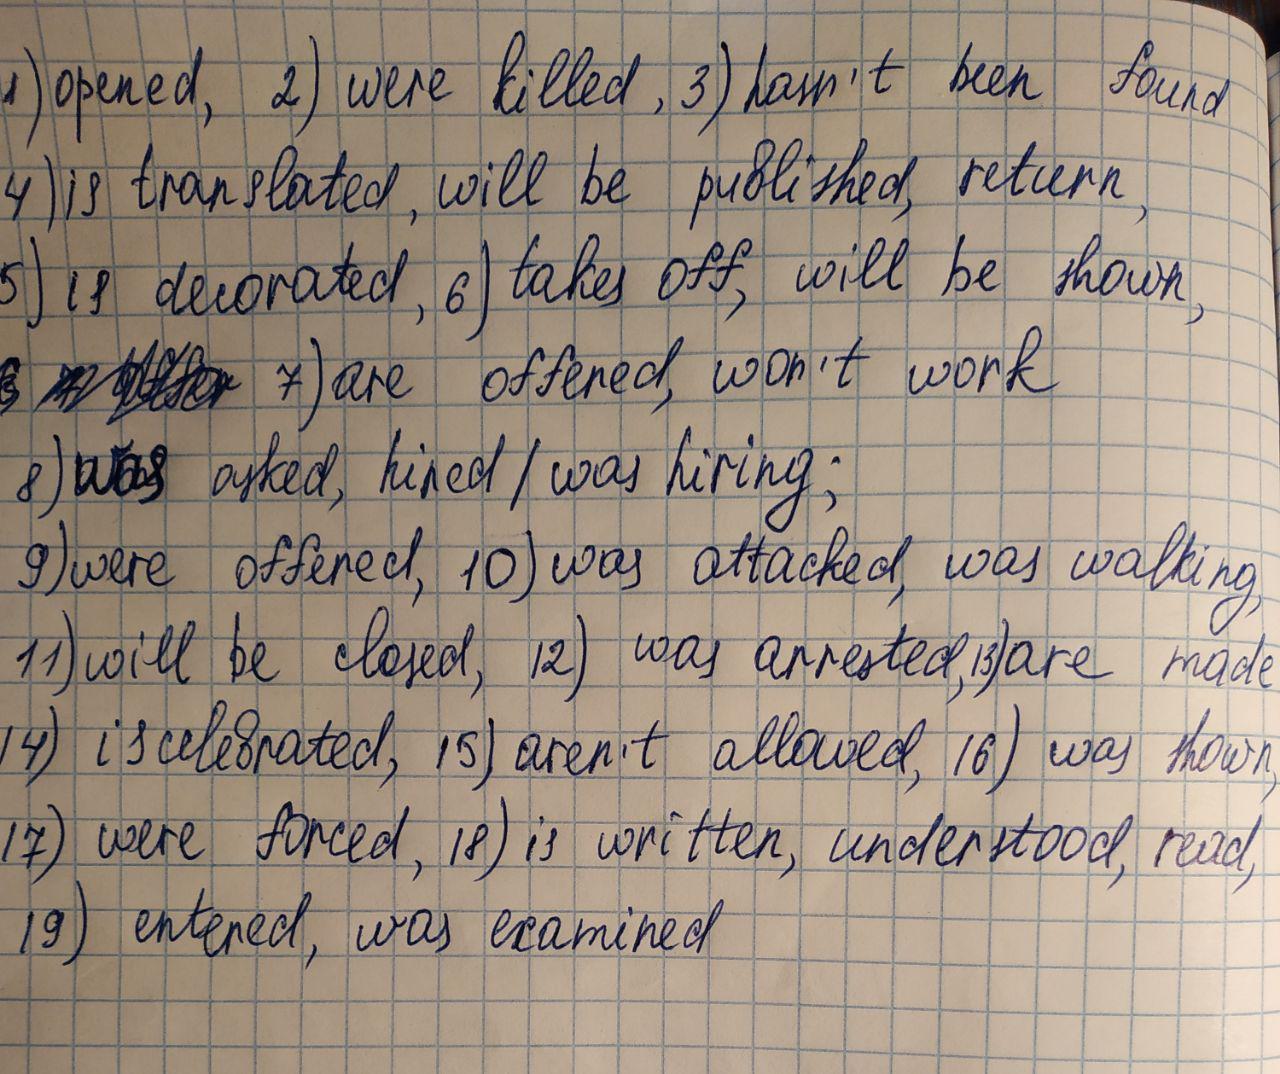 1) opened, 2) were killed, 3) hasn't been found
4) is translated, will be published, return,
5) is decorated, 6) takes off, will be shown,
7) are offered, won't work
8) was asked, hired / was hiring;
9) were offered, 10) was attacked, was walking,
11) will be closed, 12) was arrested, 13) are made
14) is celebrated, 15) aren't allowed, 16) was shown,
17) were forced, 18) is written, understood, read,
19) entered, was examined